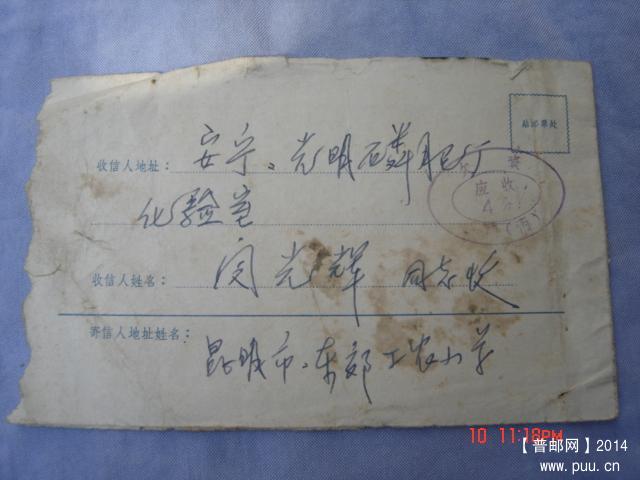 贴邮票处
收信人地址：安宁：光明磷肥厂
化验室
应收
4分
收信人姓名：闵光辉 同志收
寄信人地址姓名：
昆明市：东郊工农小学
10 11:18PM
【普邮网】2014
www.puu.cn